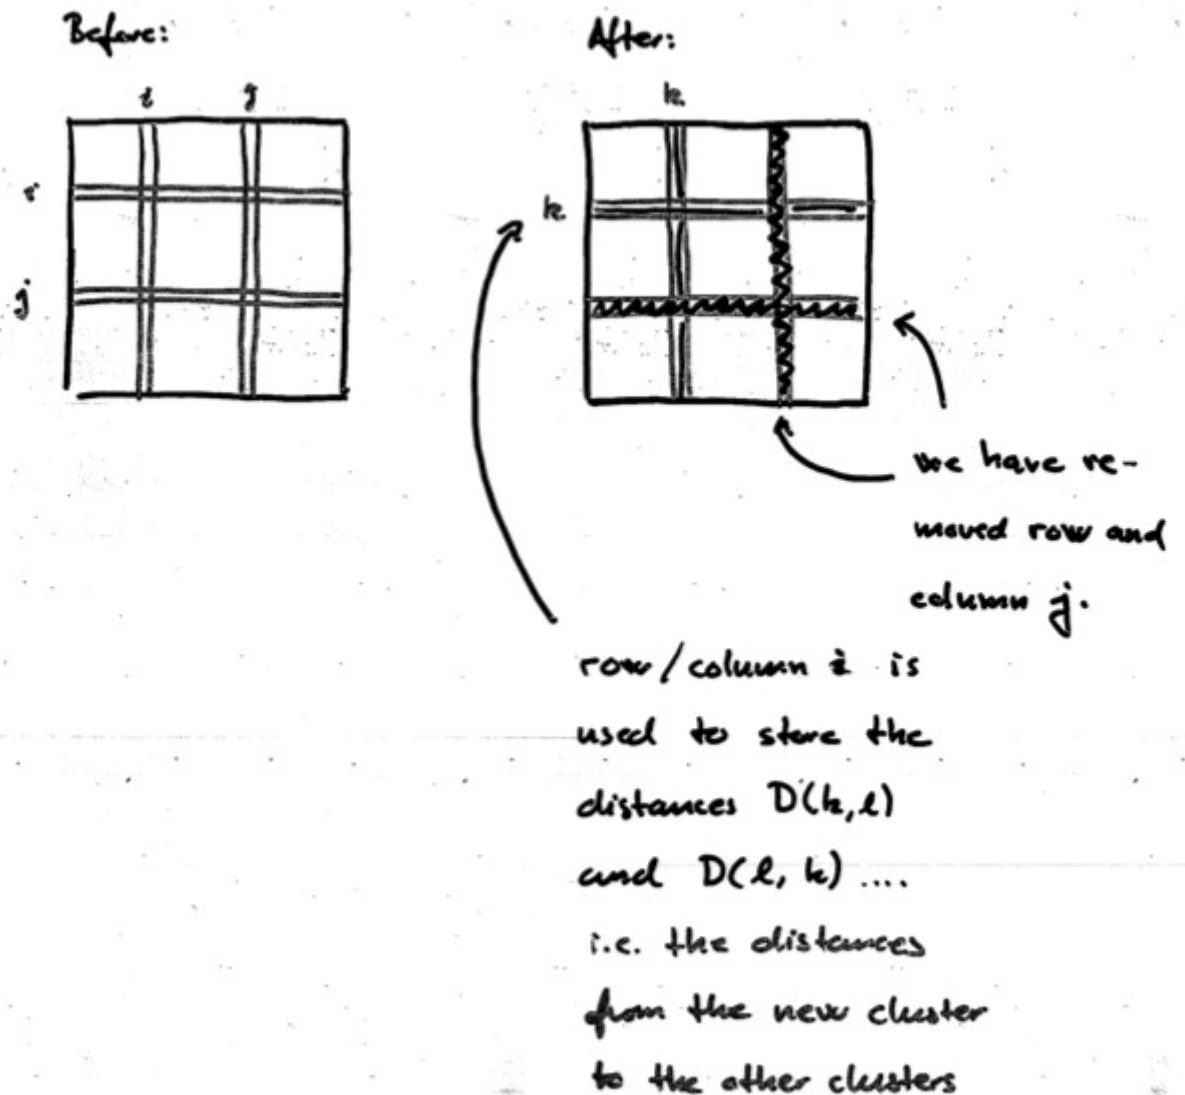 Before:
After:
i j
k
i
k
j
we have re-
moved row and
column j.
row/column i is
used to store the
distances D(k,l)
and D(l,k) ....
i.e. the distances
from the new cluster
to the other clusters